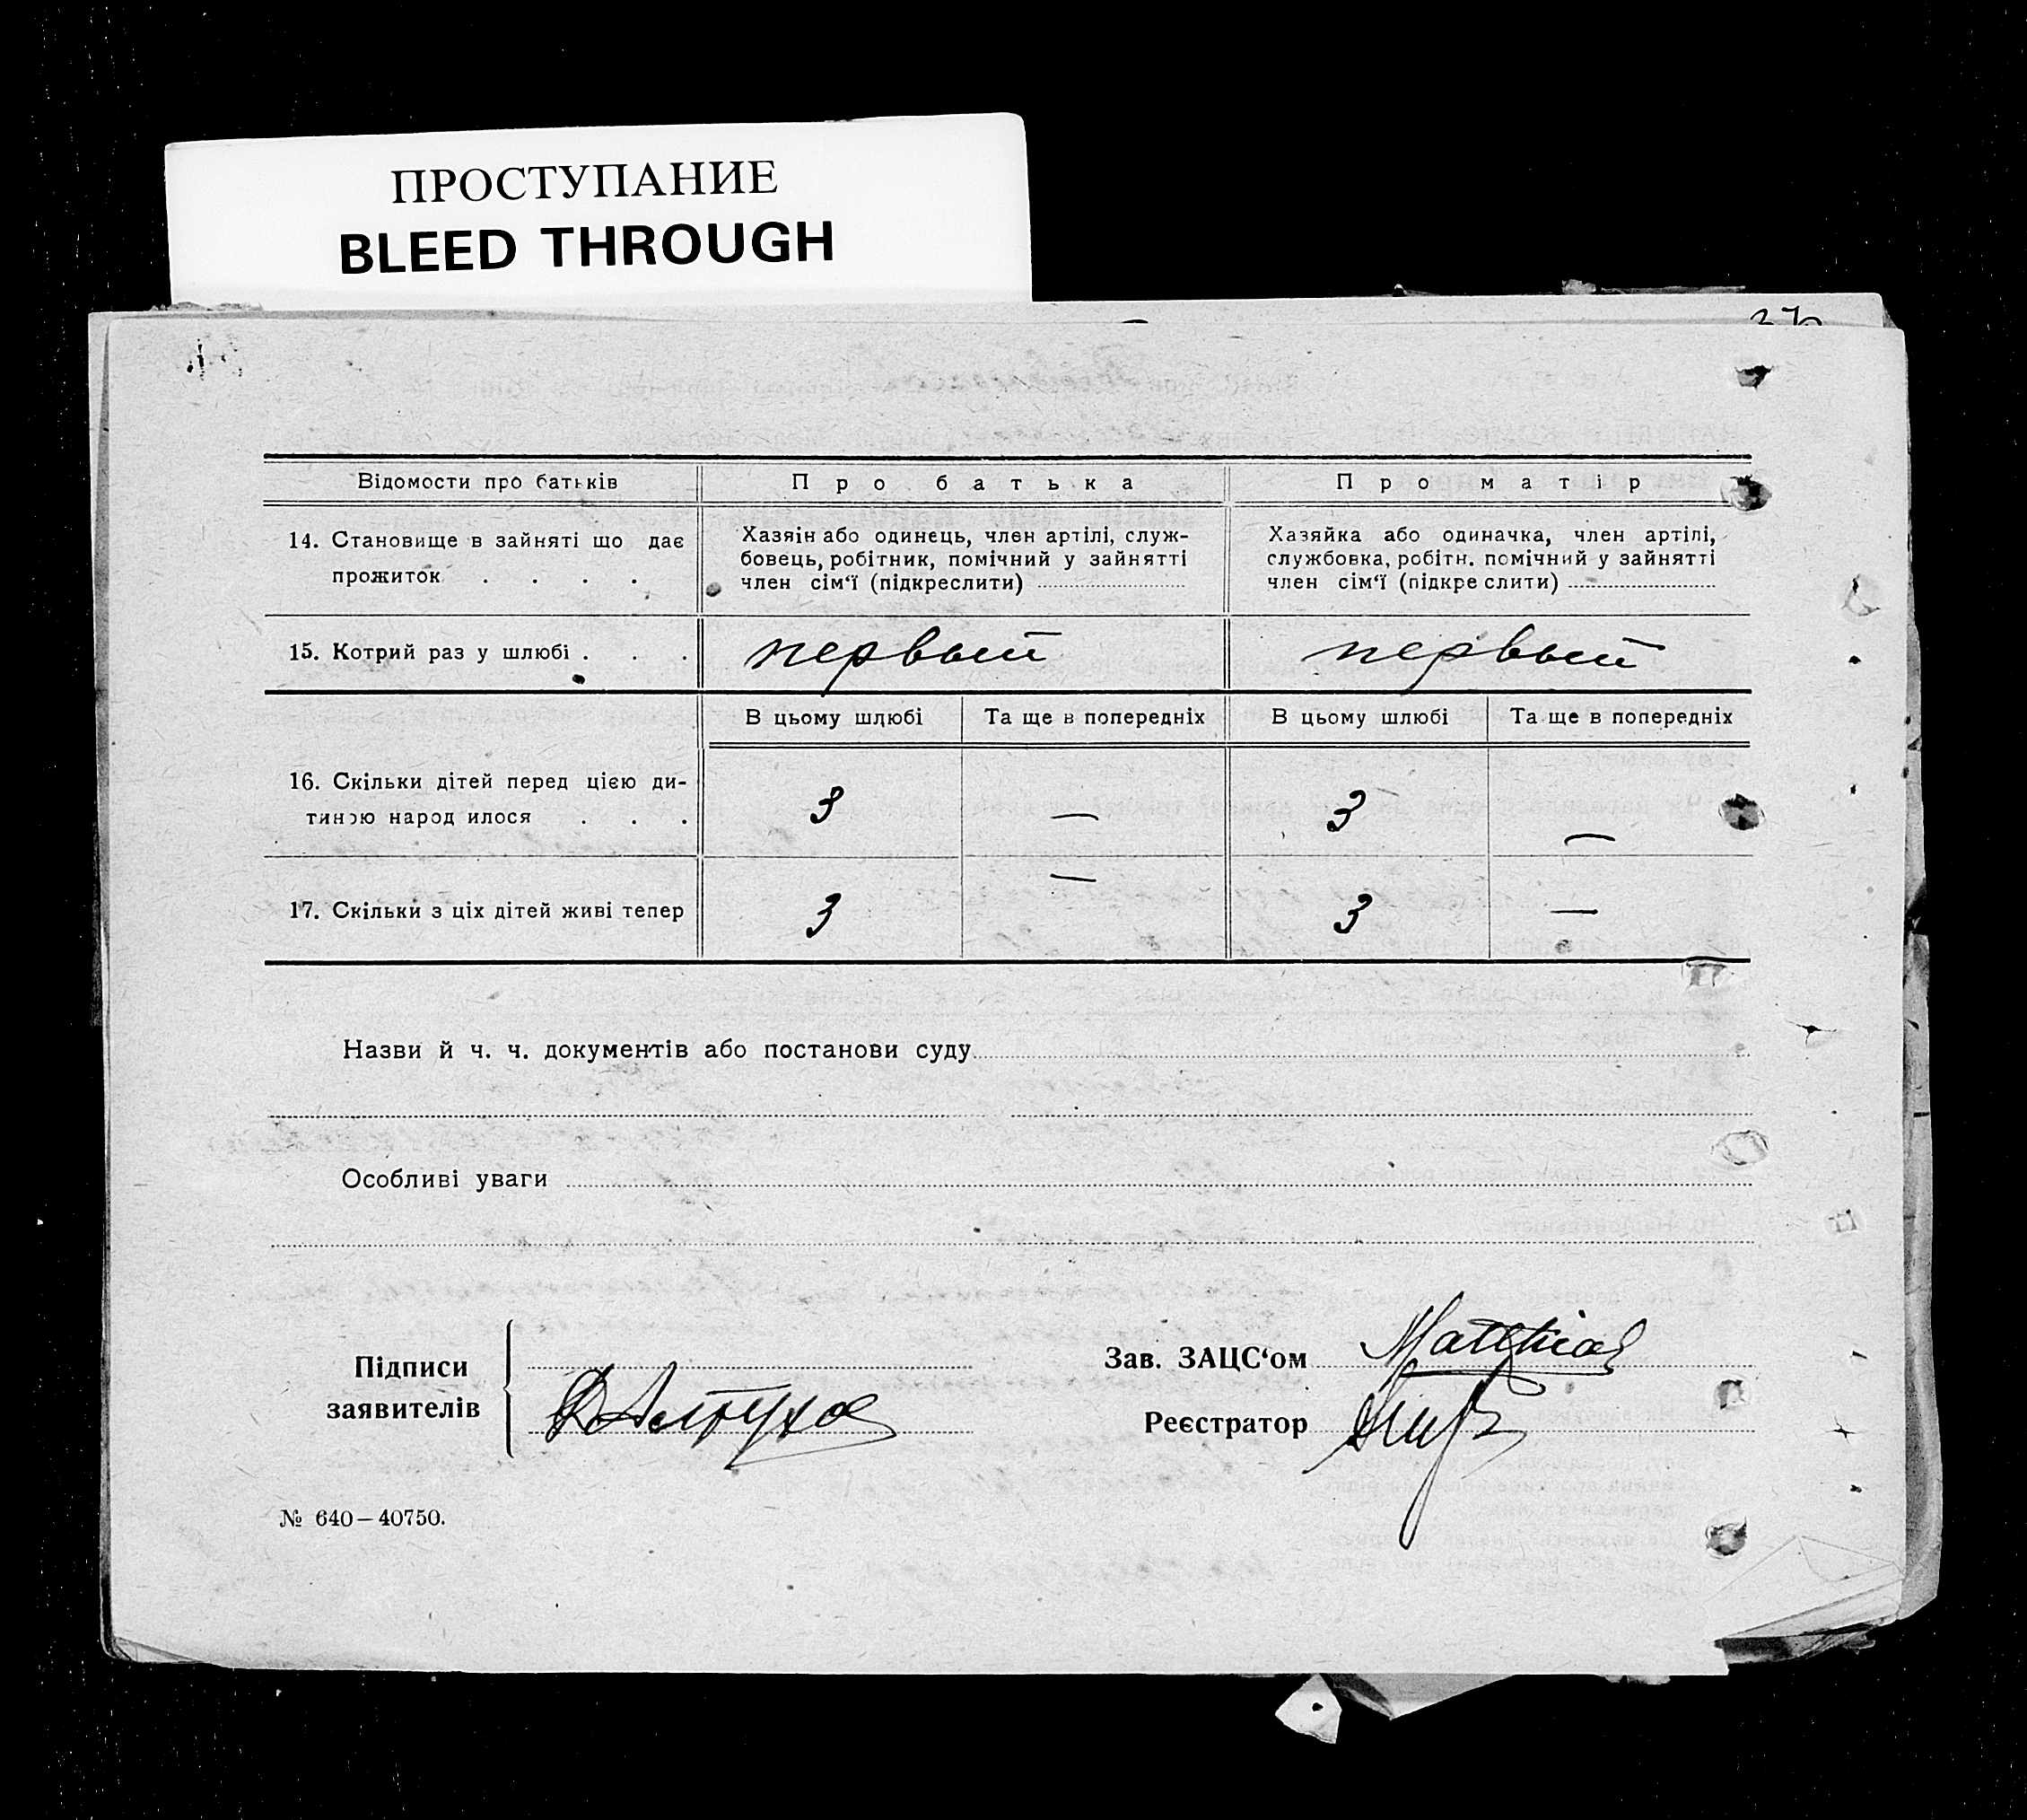 ПРОСТУПАНИЕ
BLEED THROUGH
37
Відомости про батьків
Про батька
Про матір
14. Становище в зайняті що дає
прожиток . . . .
Хазяін або одинець, член артілі, служ-
бовець, робітник, помічний у зайнятті
член сім‘ї (підкреслити)
Хазяйка або одиначка, член артілі,
службовка, робітн. помічний у зайнятті
член сім‘ї (підкре слити)
15. Котрий раз у шлюбі . . .
первый
первый
В цьому шлюбі
Та ще в попередніх
В цьому шлюбі
Та ще в попередніх
16. Скільки дітей перед цією ди-
тиною народ илося . . .
3
—
3
—
17. Скільки з ціх дітей живі тепер
3
—
3
—
Назви й ч. ч. документів або постанови суду
Особливі уваги
Підписи
заявителів
Зав. ЗАЦС‘ом
Matthias
Реєстратор
№ 640—40750.